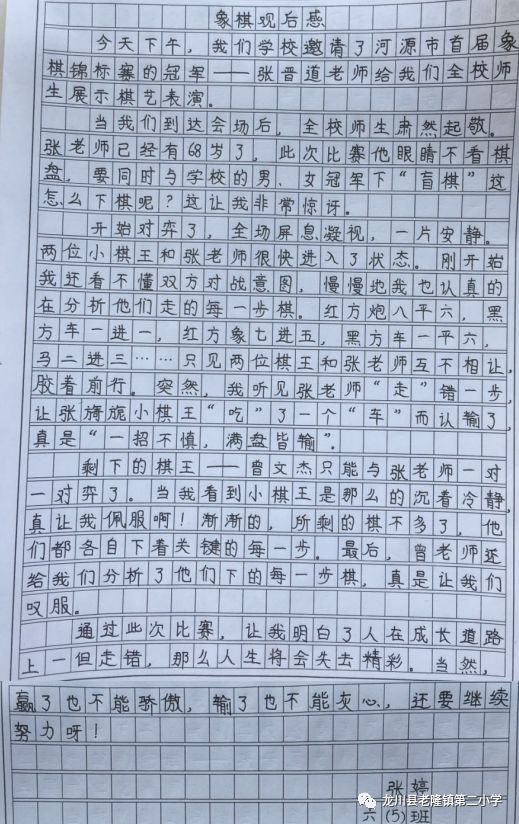 象棋观后感
今天下午，我们学校邀请了河源市首届象
棋锦标赛的冠军——张晋道老师给我们全校师
生展示棋艺表演。
当我们到达会场后，全校师生肃然起敬。
张老师已经有68岁了，此次比赛他眼睛不看棋
盘，要同时与学校的男、女冠军下“盲棋”这
怎么下棋呢？这让我非常惊讶。
开始对弈了，全场屏息凝视，一片安静。
两位小棋王和张老师很快进入了状态。刚开始
我还看不懂双方对战意图，慢慢地我也认真的
在分析他们走的每一步棋。红方炮八平六，黑
方车一进一，红方象七进五，黑方车一平六，
马二进三……只见两位棋王和张老师互不相让，
胶着前行。突然，我听见张老师“走”错一步，
让张旖旎小棋王“吃”了一个“车”而认输了，
真是“一招不慎，满盘皆输”.
剩下的棋王——曾文杰只能与张老师一对
一对弈了。当我看到小棋王是那么的沉着冷静，
真让我佩服啊！渐渐的，所剩的棋不多了，他
们都各自下着关键的每一步。最后，曾老师还
给我们分析了他们下的每一步棋，真是让我们
叹服。
通过此次比赛，让我明白了人在成长道路
上一但走错，那么人生将会失去精彩。当然，
赢了也不能骄傲，输了也不能灰心，还要继续
努力呀！
张婷
六(5)班
龙川县老隆镇第二小学